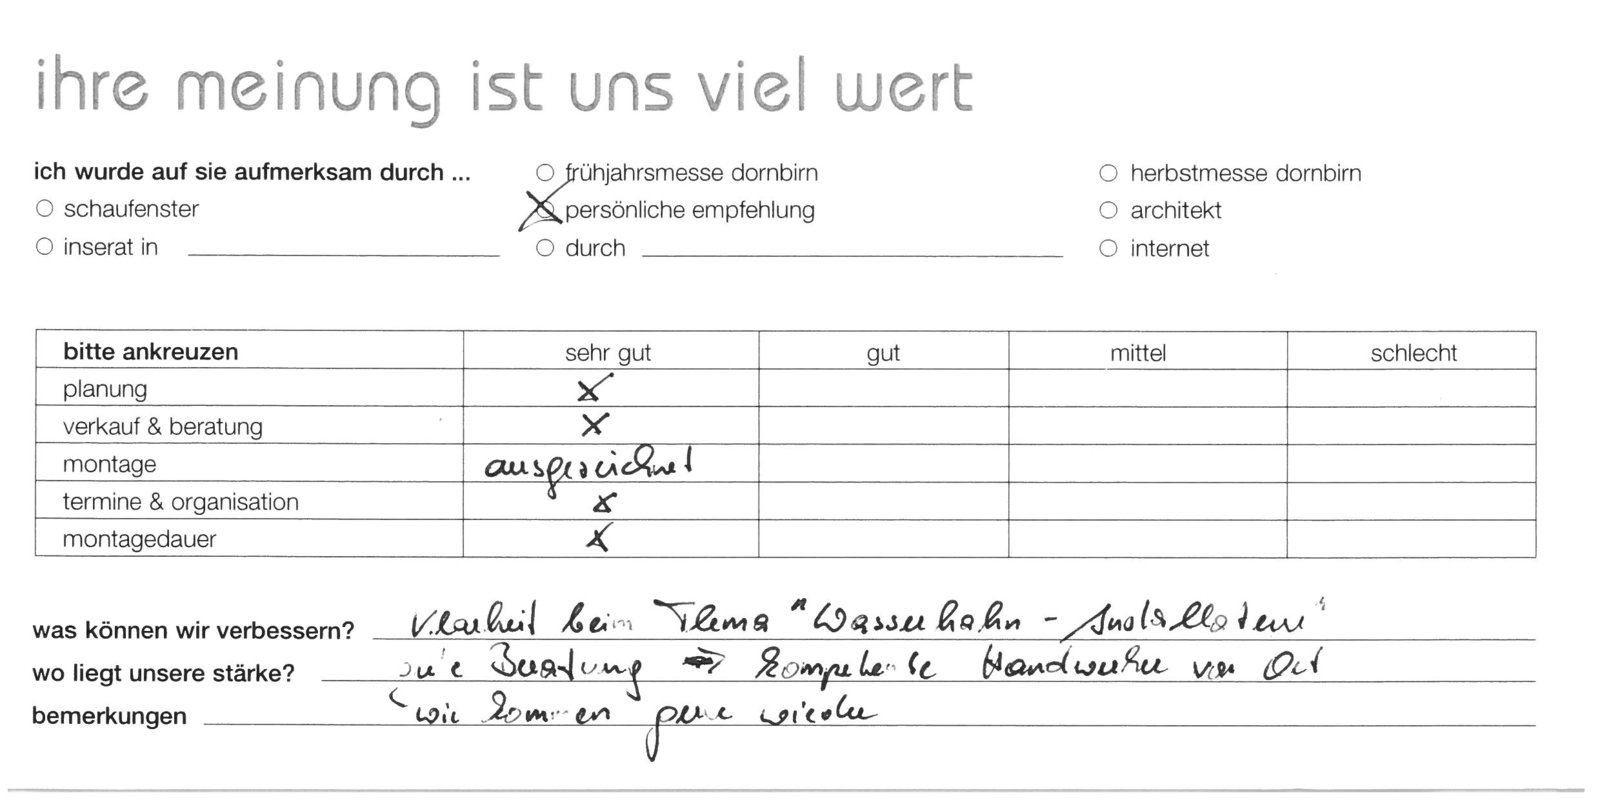 ihre meinung ist uns viel wert
ich wurde auf sie aufmerksam durch ... frühjahrsmesse dornbirn herbstmesse dornbirn
schaufenster persönliche empfehlung architekt
inserat in durch internet
bitte ankreuzen sehr gut gut mittel schlecht
planung X
verkauf & beratung X
montage ausgezeichnet
termine & organisation X
montagedauer X
was können wir verbessern? Klarheit beim Thema "Wasserhahn - Installateur"
wo liegt unsere stärke? Beratung → kompetente Handwerker vor Ort
bemerkungen wir kommen gerne wieder